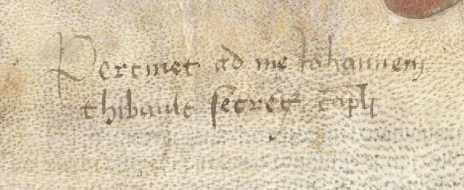 Pertinet ad me Iohannem
thibault secret capli